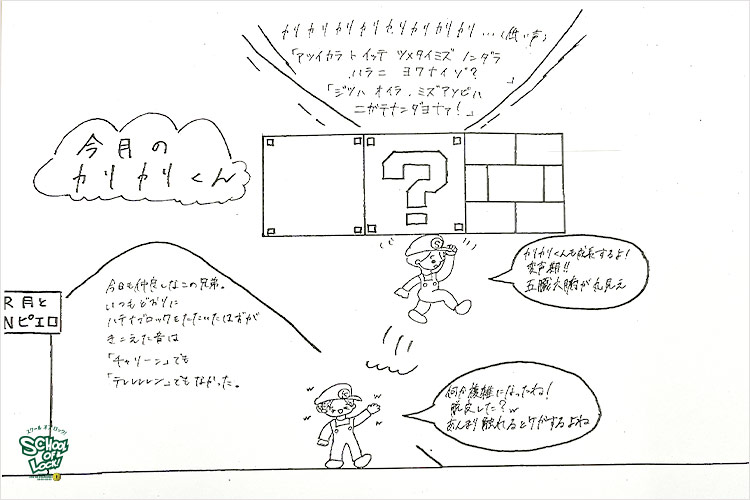 カリカリカリカリカリカリカリカリ…(低い声)
「アツイカラトイッテ ツメタイミズ ノンダラ
ハラニ ヨクナイゾ?」
「ジツハ オイラ、ミズアソビハ
ニガテナンダヨナァ!」
今月の
カリカリくん
?
カリカリくんも成長するよ!
変声期!!
五臓六腑が丸見え
今日も仲良しなこの兄弟。
いつもどおりに
ハテナブロックをたたいたはずが
きこえた音は
「チャリーン」でも
「テレレレレン」でもなかった。
R月と
Nピエロ
何か複雑になったね!
脱皮した?w
あんまり触れるとケガするよね
スクールオブロック!
SCHOOL
OF
LOCK!